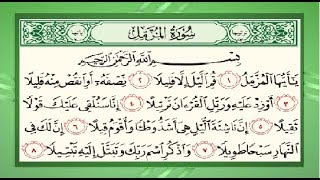 سُورَةُ المُزَّمِّل
بِسْمِ اللَّهِ الرَّحْمَٰنِ الرَّحِيمِ
يَا أَيُّهَا الْمُزَّمِّلُ ۝١ قُمِ الَّيْلَ إِلَّا قَلِيلًا ۝٢ نِّصْفَهُ أَوِ انقُصْ مِنْهُ قَلِيلًا
۝٣ أَوْ زِدْ عَلَيْهِ وَرَتِّلِ الْقُرْءَانَ تَرْتِيلًا ۝٤ إِنَّا سَنُلْقِي عَلَيْكَ قَوْلًا
ثَقِيلًا ۝٥ إِنَّ نَاشِئَةَ الَّيْلِ هِيَ أَشَدُّ وَطْئًا وَأَقْوَمُ قِيلًا ۝٦ إِنَّ لَكَ فِي
النَّهَارِ سَبْحًا طَوِيلًا ۝٧ وَاذْكُرِ اسْمَ رَبِّكَ وَتَبَتَّلْ إِلَيْهِ تَبْتِيلًا ۝٨